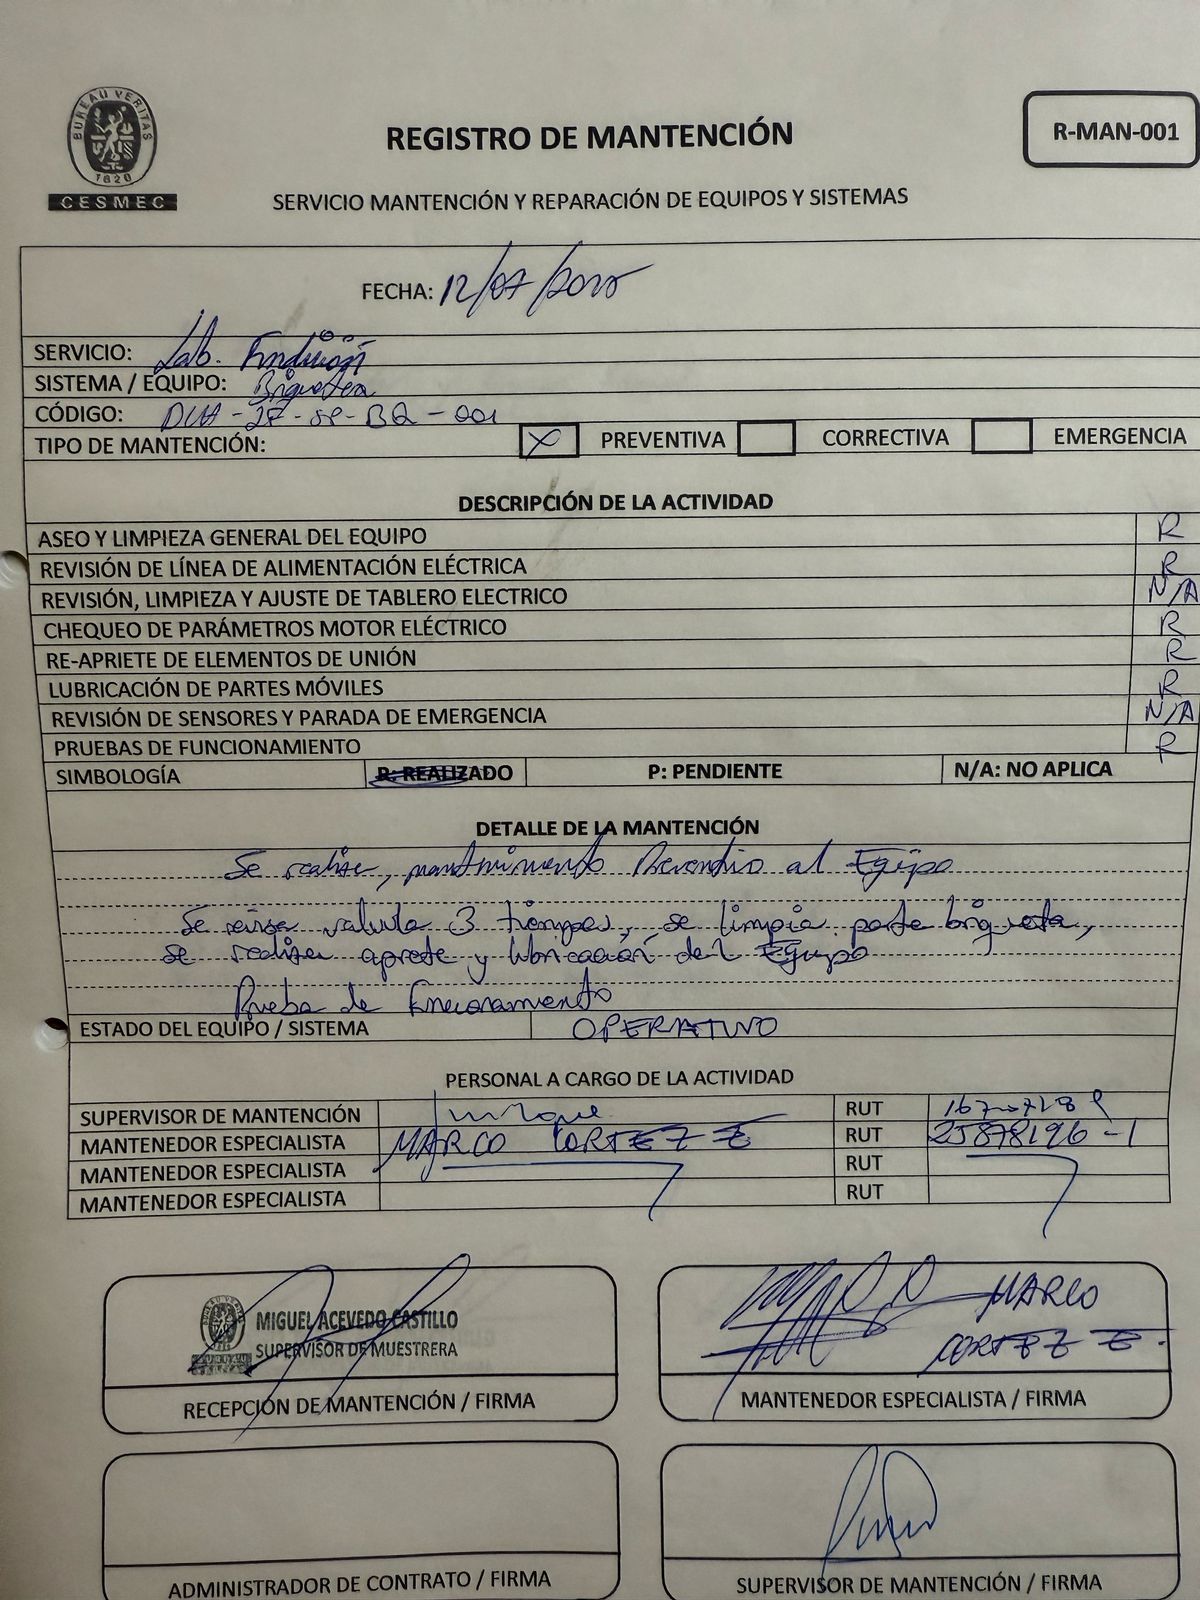 BUREAU VERITAS
1828
CESMEC
REGISTRO DE MANTENCIÓN
R-MAN-001
SERVICIO MANTENCIÓN Y REPARACIÓN DE EQUIPOS Y SISTEMAS
FECHA: 12/07/2025
SERVICIO: Lab. Fundición
SISTEMA / EQUIPO: Briquetera
CÓDIGO: BQ-001
TIPO DE MANTENCIÓN: X PREVENTIVA CORRECTIVA EMERGENCIA
DESCRIPCIÓN DE LA ACTIVIDAD
ASEO Y LIMPIEZA GENERAL DEL EQUIPO R
REVISIÓN DE LÍNEA DE ALIMENTACIÓN ELÉCTRICA R
REVISIÓN, LIMPIEZA Y AJUSTE DE TABLERO ELECTRICO N/A
CHEQUEO DE PARÁMETROS MOTOR ELÉCTRICO R
RE-APRIETE DE ELEMENTOS DE UNIÓN R
LUBRICACIÓN DE PARTES MÓVILES R
REVISIÓN DE SENSORES Y PARADA DE EMERGENCIA N/A
PRUEBAS DE FUNCIONAMIENTO R
SIMBOLOGÍA R: REALIZADO P: PENDIENTE N/A: NO APLICA
DETALLE DE LA MANTENCIÓN
Se realiza, mantenimiento al Equipo
Se revisa valvula 3 tiempos, se limpia parte briqueta,
se realiza apriete y lubricación del Equipo
Prueba de Funcionamiento
ESTADO DEL EQUIPO / SISTEMA OPERATIVO
PERSONAL A CARGO DE LA ACTIVIDAD
SUPERVISOR DE MANTENCIÓN RUT
MANTENEDOR ESPECIALISTA MARCO CORTEZ Z RUT 25878196-1
MANTENEDOR ESPECIALISTA RUT
MANTENEDOR ESPECIALISTA RUT
MIGUEL ACEVEDO CASTILLO
SUPERVISOR DE MUESTRERA
RECEPCIÓN DE MANTENCIÓN / FIRMA
MARCO
CORTEZ Z.
MANTENEDOR ESPECIALISTA / FIRMA
ADMINISTRADOR DE CONTRATO / FIRMA
SUPERVISOR DE MANTENCIÓN / FIRMA